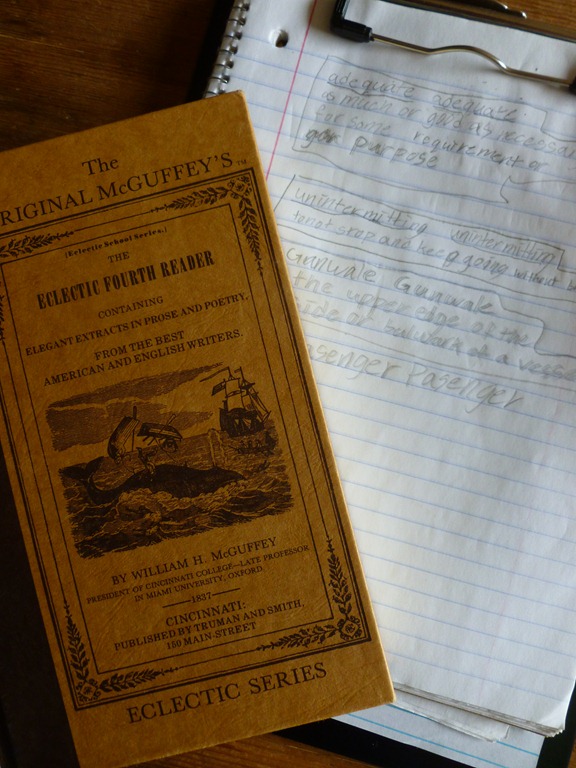 The
RIGINAL McGUFFEY'S TM
(Eclectic School Series.)
THE
ECLECTIC FOURTH READER
CONTAINING
ELEGANT EXTRACTS IN PROSE AND POETRY,
FROM THE BEST
AMERICAN AND ENGLISH WRITERS.
BY WILLIAM H. McGUFFEY
PRESIDENT OF CINCINNATI COLLEGE—LATE PROFESSOR
IN MIAMI UNIVERSITY, OXFORD.
1837
CINCINNATI:
PUBLISHED BY TRUMAN AND SMITH,
150 MAIN-STREET
ECLECTIC SERIES
adequate adequate
as much or good as necessar
for some requirement or
purpose
unintermitting unintermitting
to not stop and keep going without
Gunwale Gunwale
the upper edge of the
side or bulwark of a vesse
asenger Pasenger